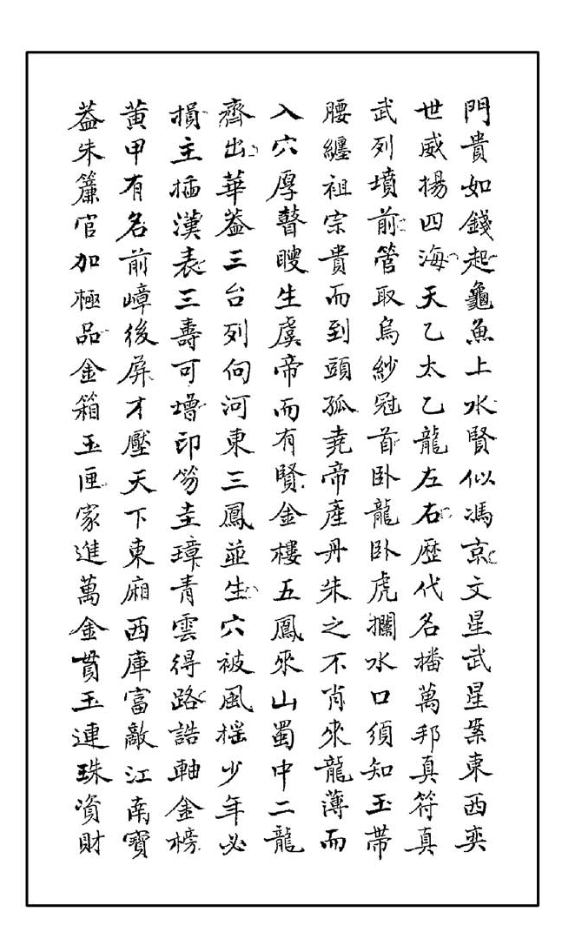 門貴如錢起龜魚上水賢似馮京文星武星案東西奕
世威揚四海天乙太乙龍左右歷代名播萬邦真符真
武列墳前管取烏紗冠首卧龍卧虎攔水口須知玉帶
腰纏祖宗貴而到頭孤堯帝產丹朱之不肖來龍薄而
入穴厚瞽瞍生虞帝而有賢金樓五鳳來山蜀中二龍
齊出華葢三台列向河東三鳳並生穴被風摇少年必
損主插漢表三壽可增印笏圭璋青雲得路誥軸金榜
黃甲有名前嶂後屏才壓天下東廂西庫富敵江南寶
葢朱簾官加極品金箱玉匣家進萬金貫玉連珠資財